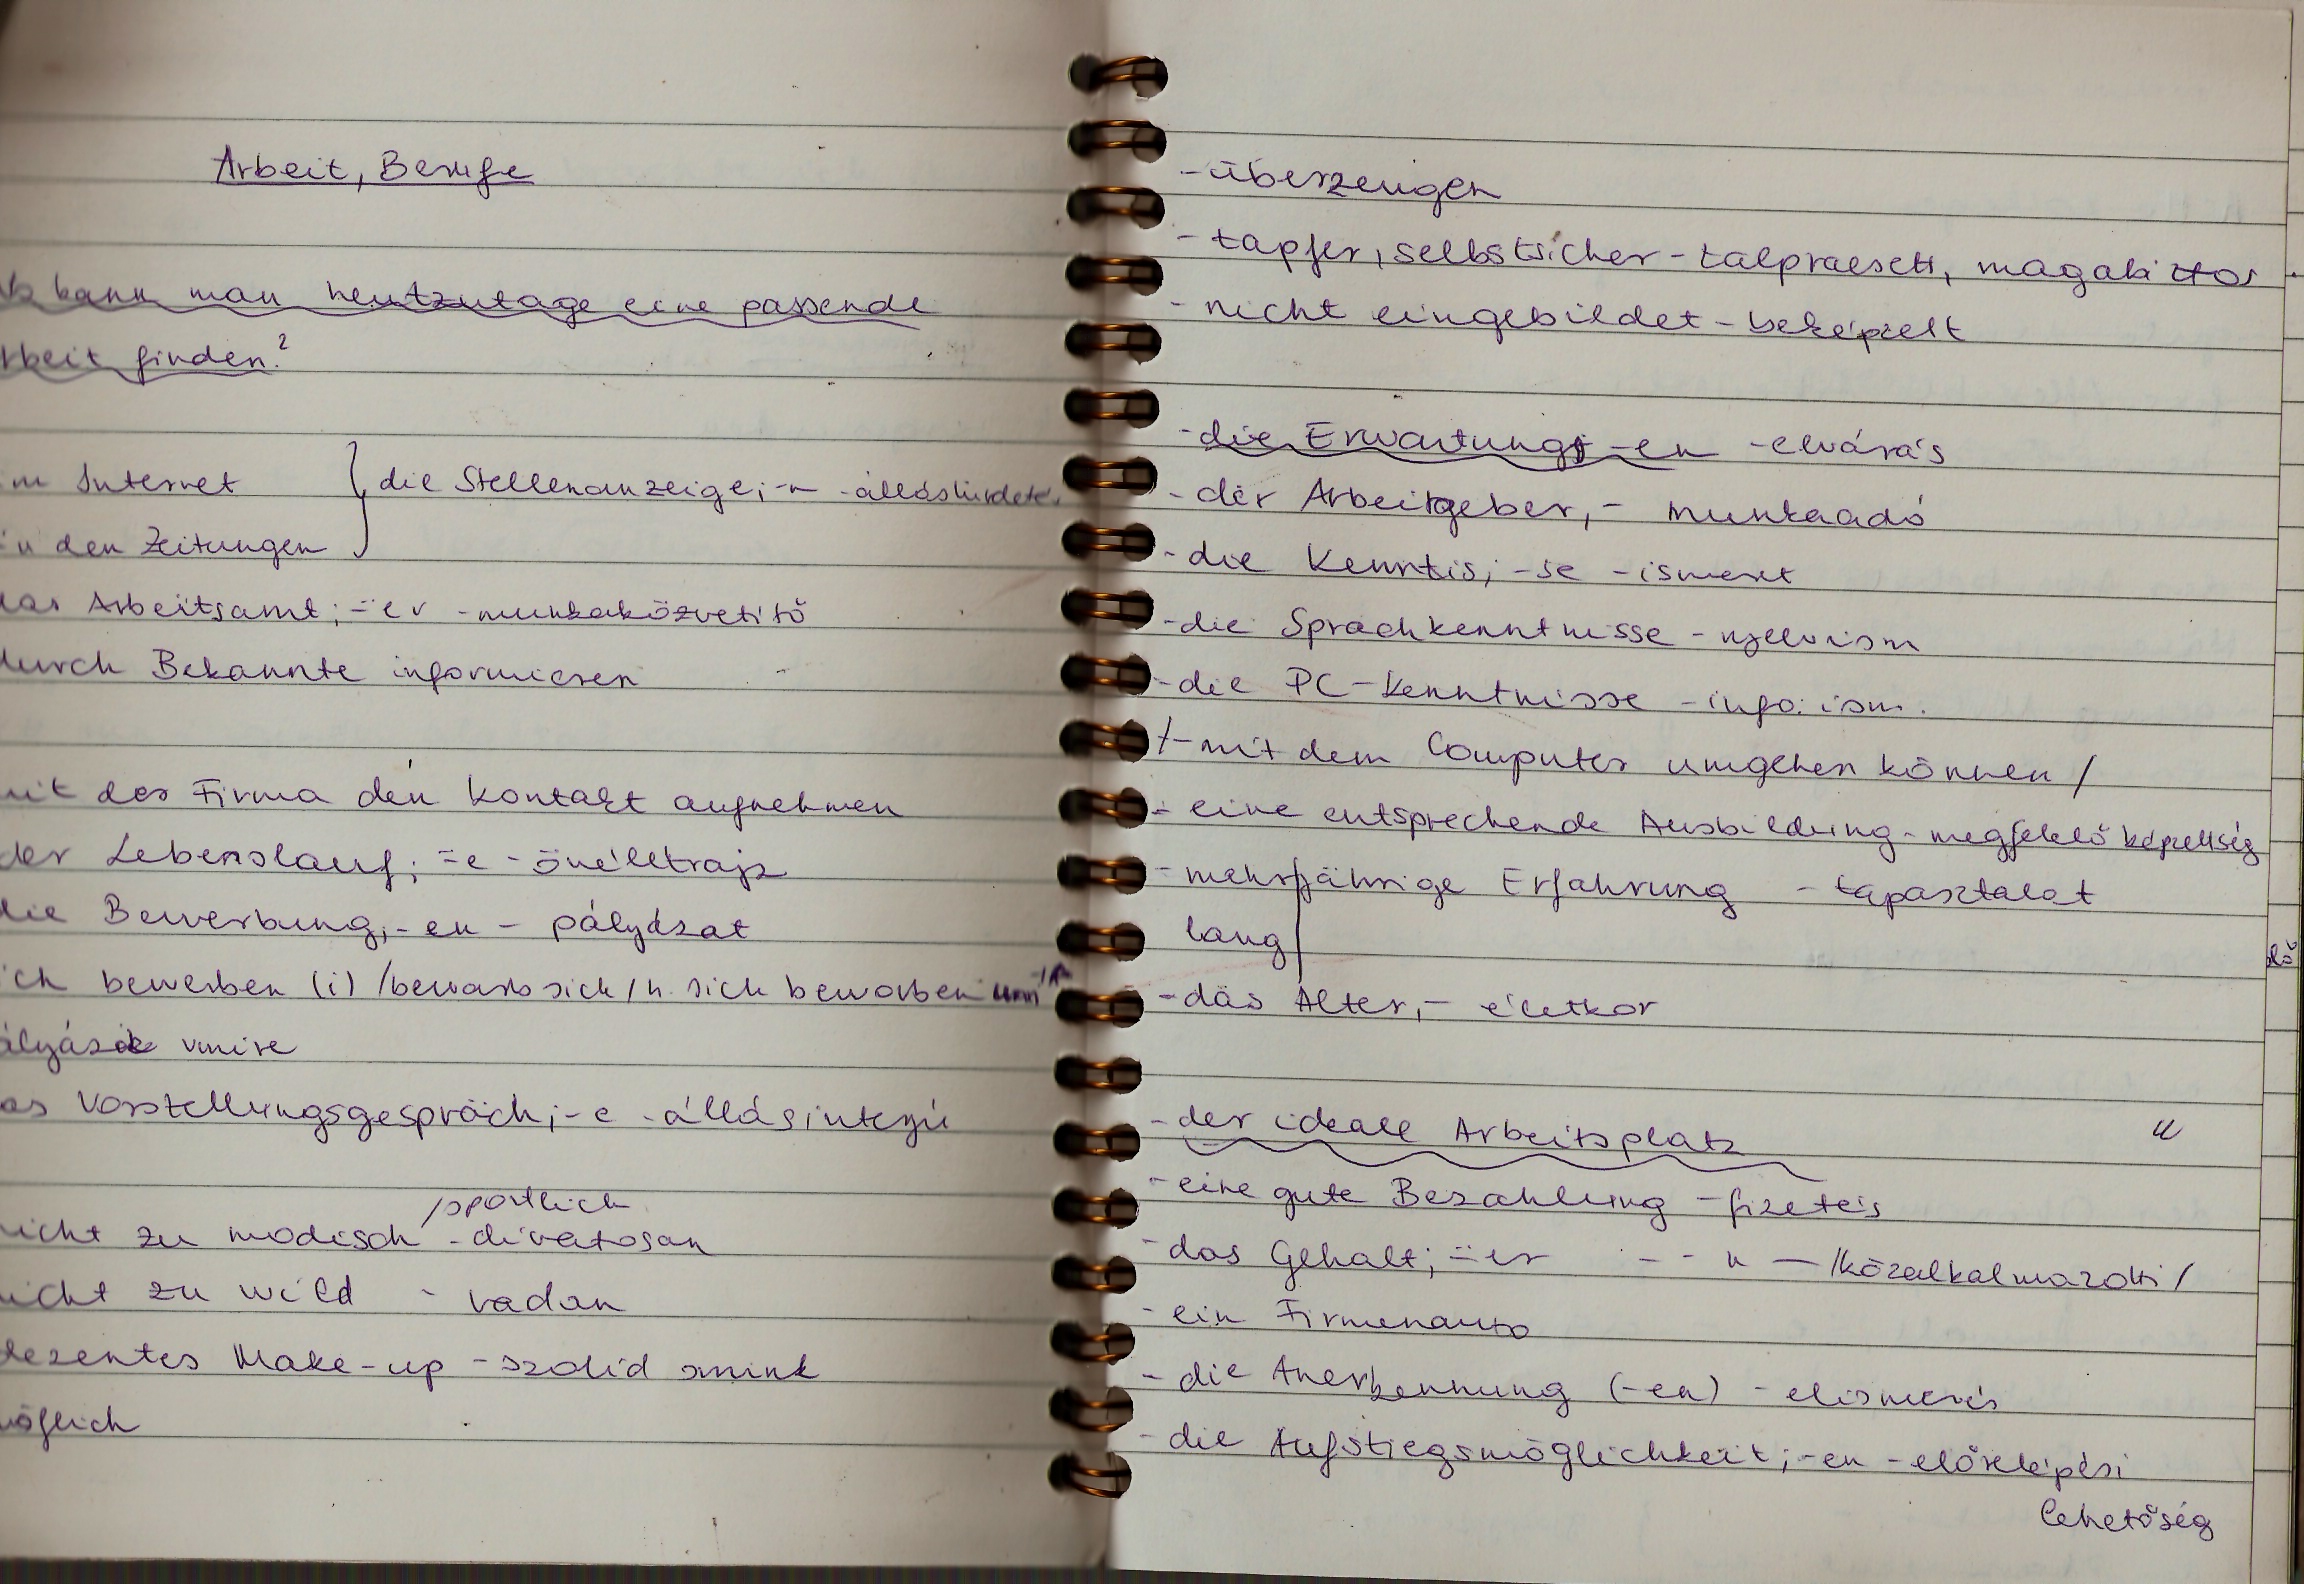 Arbeit, Berufe
kann man heutzutage eine passende
rbeit finden?
im Internet } die Stellenanzeige; -n - álláshirdeté
in den Zeitungen
das Arbeitsamt; -̈er - munkaközvetitő
durch Bekannte informieren
mit der Firma den Kontakt aufnehmen
der Lebenslauf; -̈e - önéletrajz
die Bewerbung, -en - pályázat
ich bewerben (i) /bewarb sich / h. sich beworben um
ályázik vmire
as Vorstellungsgespräch; -e - állásinterjú
/sportlich
nicht zu modisch - divatosan
nicht zu wild - vadan
dezentes Make-up - szolid smink
höflich
- überzeugen
- tapfer, selbstsicher - talpraesett, magabiztos
- nicht eingebildet - beképzelt
- die Erwartung, -en - elvárás
- der Arbeitgeber, - munkaadó
- die Kenntis; -se - ismeret
- die Sprachkenntnisse - nyelvism
- die PC-Kenntnisse - info. ism.
/- mit dem Computer umgehen können /
- eine entsprechende Ausbildung - megfelelő képzettség
- mehrjährige Erfahrung - tapasztalat
lang
- das Alter, - életkor
- der ideale Arbeitsplatz
- eine gute Bezahlung - fizetés
- das Gehalt; -̈er - - " - /közalkalmazotti/
- ein Firmenauto
- die Anerkennung (-en) - elismerés
- die Aufstiegsmöglichkeit; -en - előrelépési
lehetőség